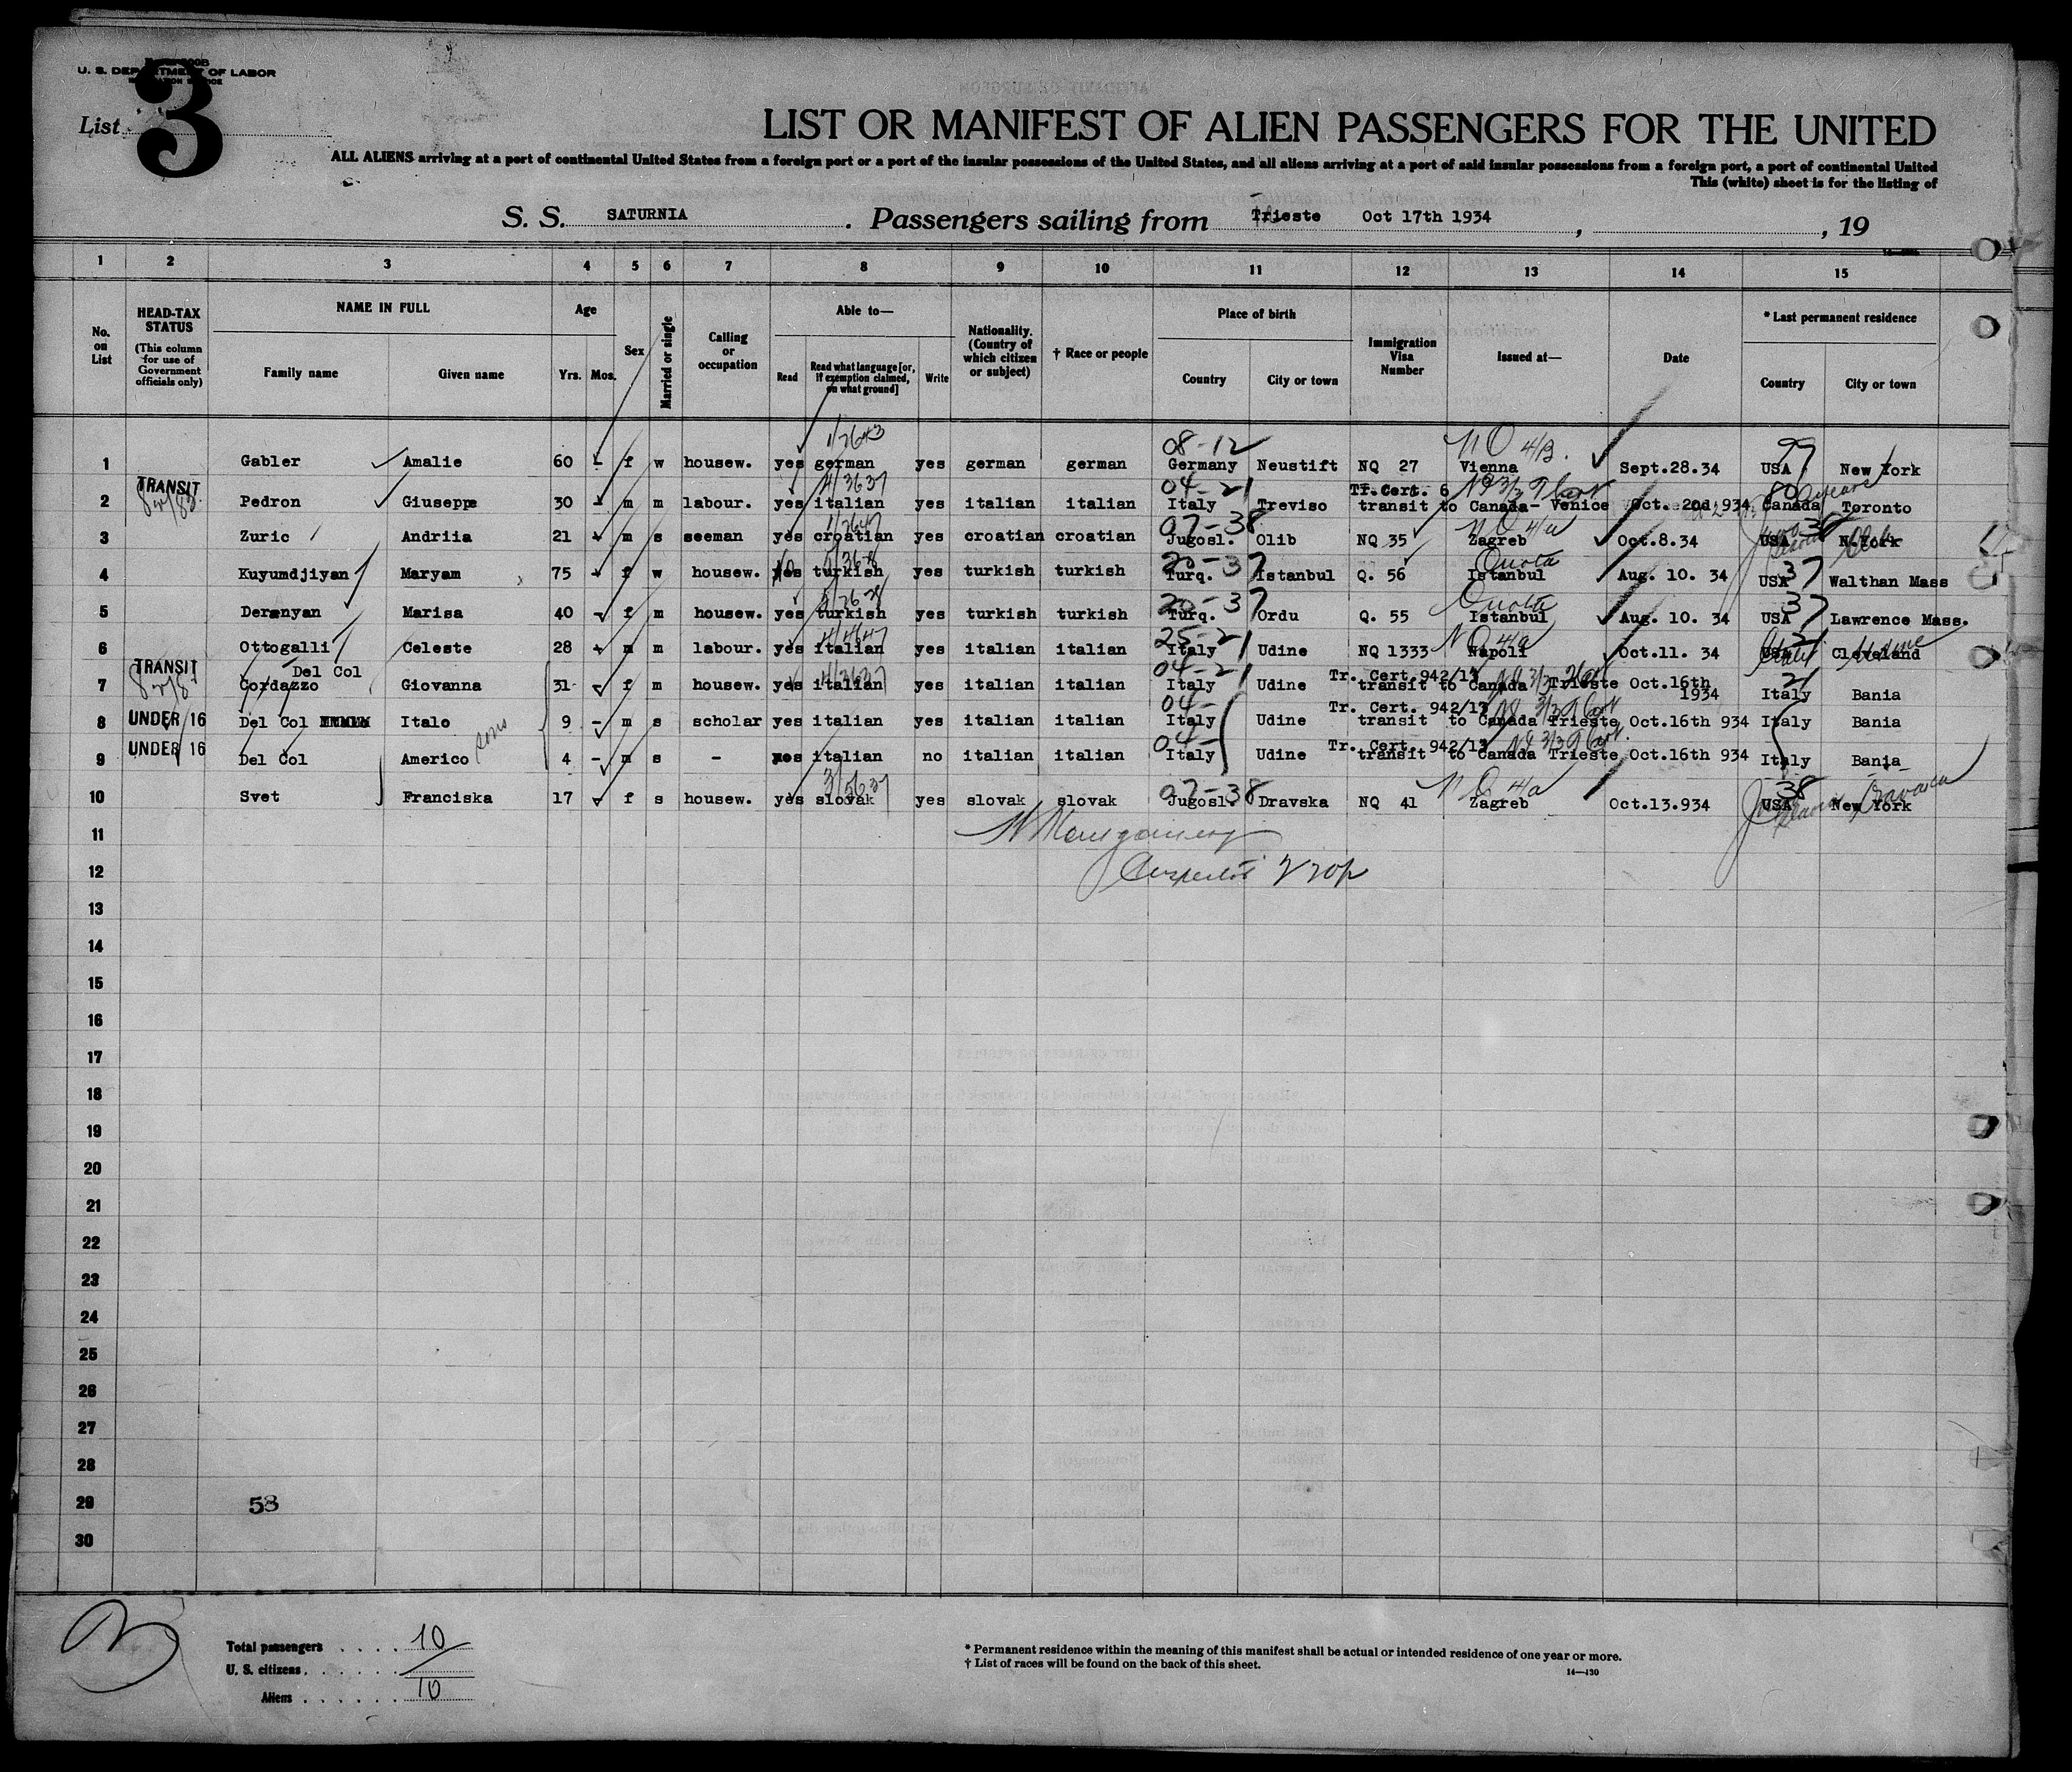 U. S. DEPARTMENT OF LABOR
List 3
LIST OR MANIFEST OF ALIEN PASSENGERS FOR THE UNITED
ALL ALIENS arriving at a port of continental United States from a foreign port or a port of the insular possessions of the United States, and all aliens arriving at a port of said insular possessions from a foreign port, a port of continental United
This (white) sheet is for the listing of
S. S. SATURNIA . Passengers sailing from Trieste Oct 17th 1934 , , 19
1 2 3 4 5 6 7 8 9 10 11 12 13 14 15
No. on List HEAD-TAX STATUS (This column for use of Government officials only) NAME IN FULL Family name Given name Age Yrs. Mos. Sex Married or single Calling or occupation Able to— Read Read what language [or, if exemption claimed, on what ground] Write Nationality. (Country of which citizen or subject) † Race or people Place of birth Country City or town Immigration Visa Number Issued at— Date * Last permanent residence Country City or town
08-12 NQ 4/B.
1 Gabler Amalie 60 - f w housew. yes german yes german german Germany Neustift NQ 27 Vienna Sept.28.34 USA New York
TRANSIT 4/3637 04-21 Tr.Cert. 6
2 Pedron Giuseppe 30 - m m labour. yes italian yes italian italian Italy Treviso transit to Canada- Venice Oct. 20d 934 Canada Toronto
07-38 NQ 4/a
3 Zuric Andriia 21 m s seeman yes croatian yes croatian croatian Jugosl. Olib NQ 35 Zagreb Oct.8.34 USA N.York
20-37 Quota
4 Kuyumdjiyan Maryam 75 f w housew. yes turkish yes turkish turkish Turq. Istanbul Q. 56 Istanbul Aug. 10. 34 USA 37 Walthan Mass
20-37 Quota 37
5 Deranyan Marisa 40 f m housew. yes turkish yes turkish turkish Turq. Ordu Q. 55 Istanbul Aug. 10. 34 USA Lawrence Mass.
25-21 NQ 4/a
6 Ottogalli Celeste 28 m m labour. yes italian yes italian italian Italy Udine NQ 1333 Napoli Oct.11. 34 USA Cleveland
TRANSIT Del Col 4/3637 04-21 Tr. Cert. 942/13 21
7 Cordazzo Giovanna 31 f m housew. yes italian yes italian italian Italy Udine transit to Canada Trieste Oct.16th 1934 Italy Bania
04- Tr. Cert. 942/13
8 UNDER 16 Del Col Italo 9 - m s scholar yes italian yes italian italian Italy Udine transit to Canada Trieste Oct.16th 934 Italy Bania
sons
04- Tr. Cert. 942/13
9 UNDER 16 Del Col Americo 4 - m s - italian no italian italian Italy Udine transit to Canada Trieste Oct.16th 934 Italy Bania
07-38 NQ 4/a 38
10 Svet Franciska 17 f s housew. yes slovak yes slovak slovak Jugosl. Dravska NQ 41 Zagreb Oct.13.934 USA New York
11 Montgomery
12 Inspector
13
14
15
16
17
18
19
20
21
22
23
24
25
26
27
28
29 58
30
Total passengers . . . . 10
U. S. citizens. . . . . .
Aliens . . . . . . 10
* Permanent residence within the meaning of this manifest shall be actual or intended residence of one year or more.
† List of races will be found on the back of this sheet.
14—130